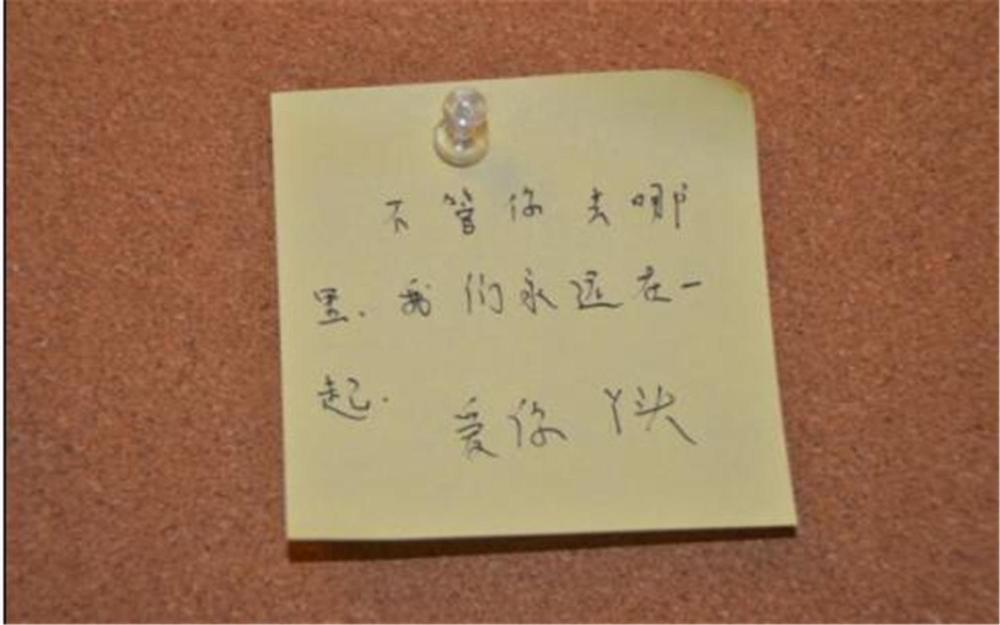 不管你去哪
里.我们永远在一
起.
爱你 丫头